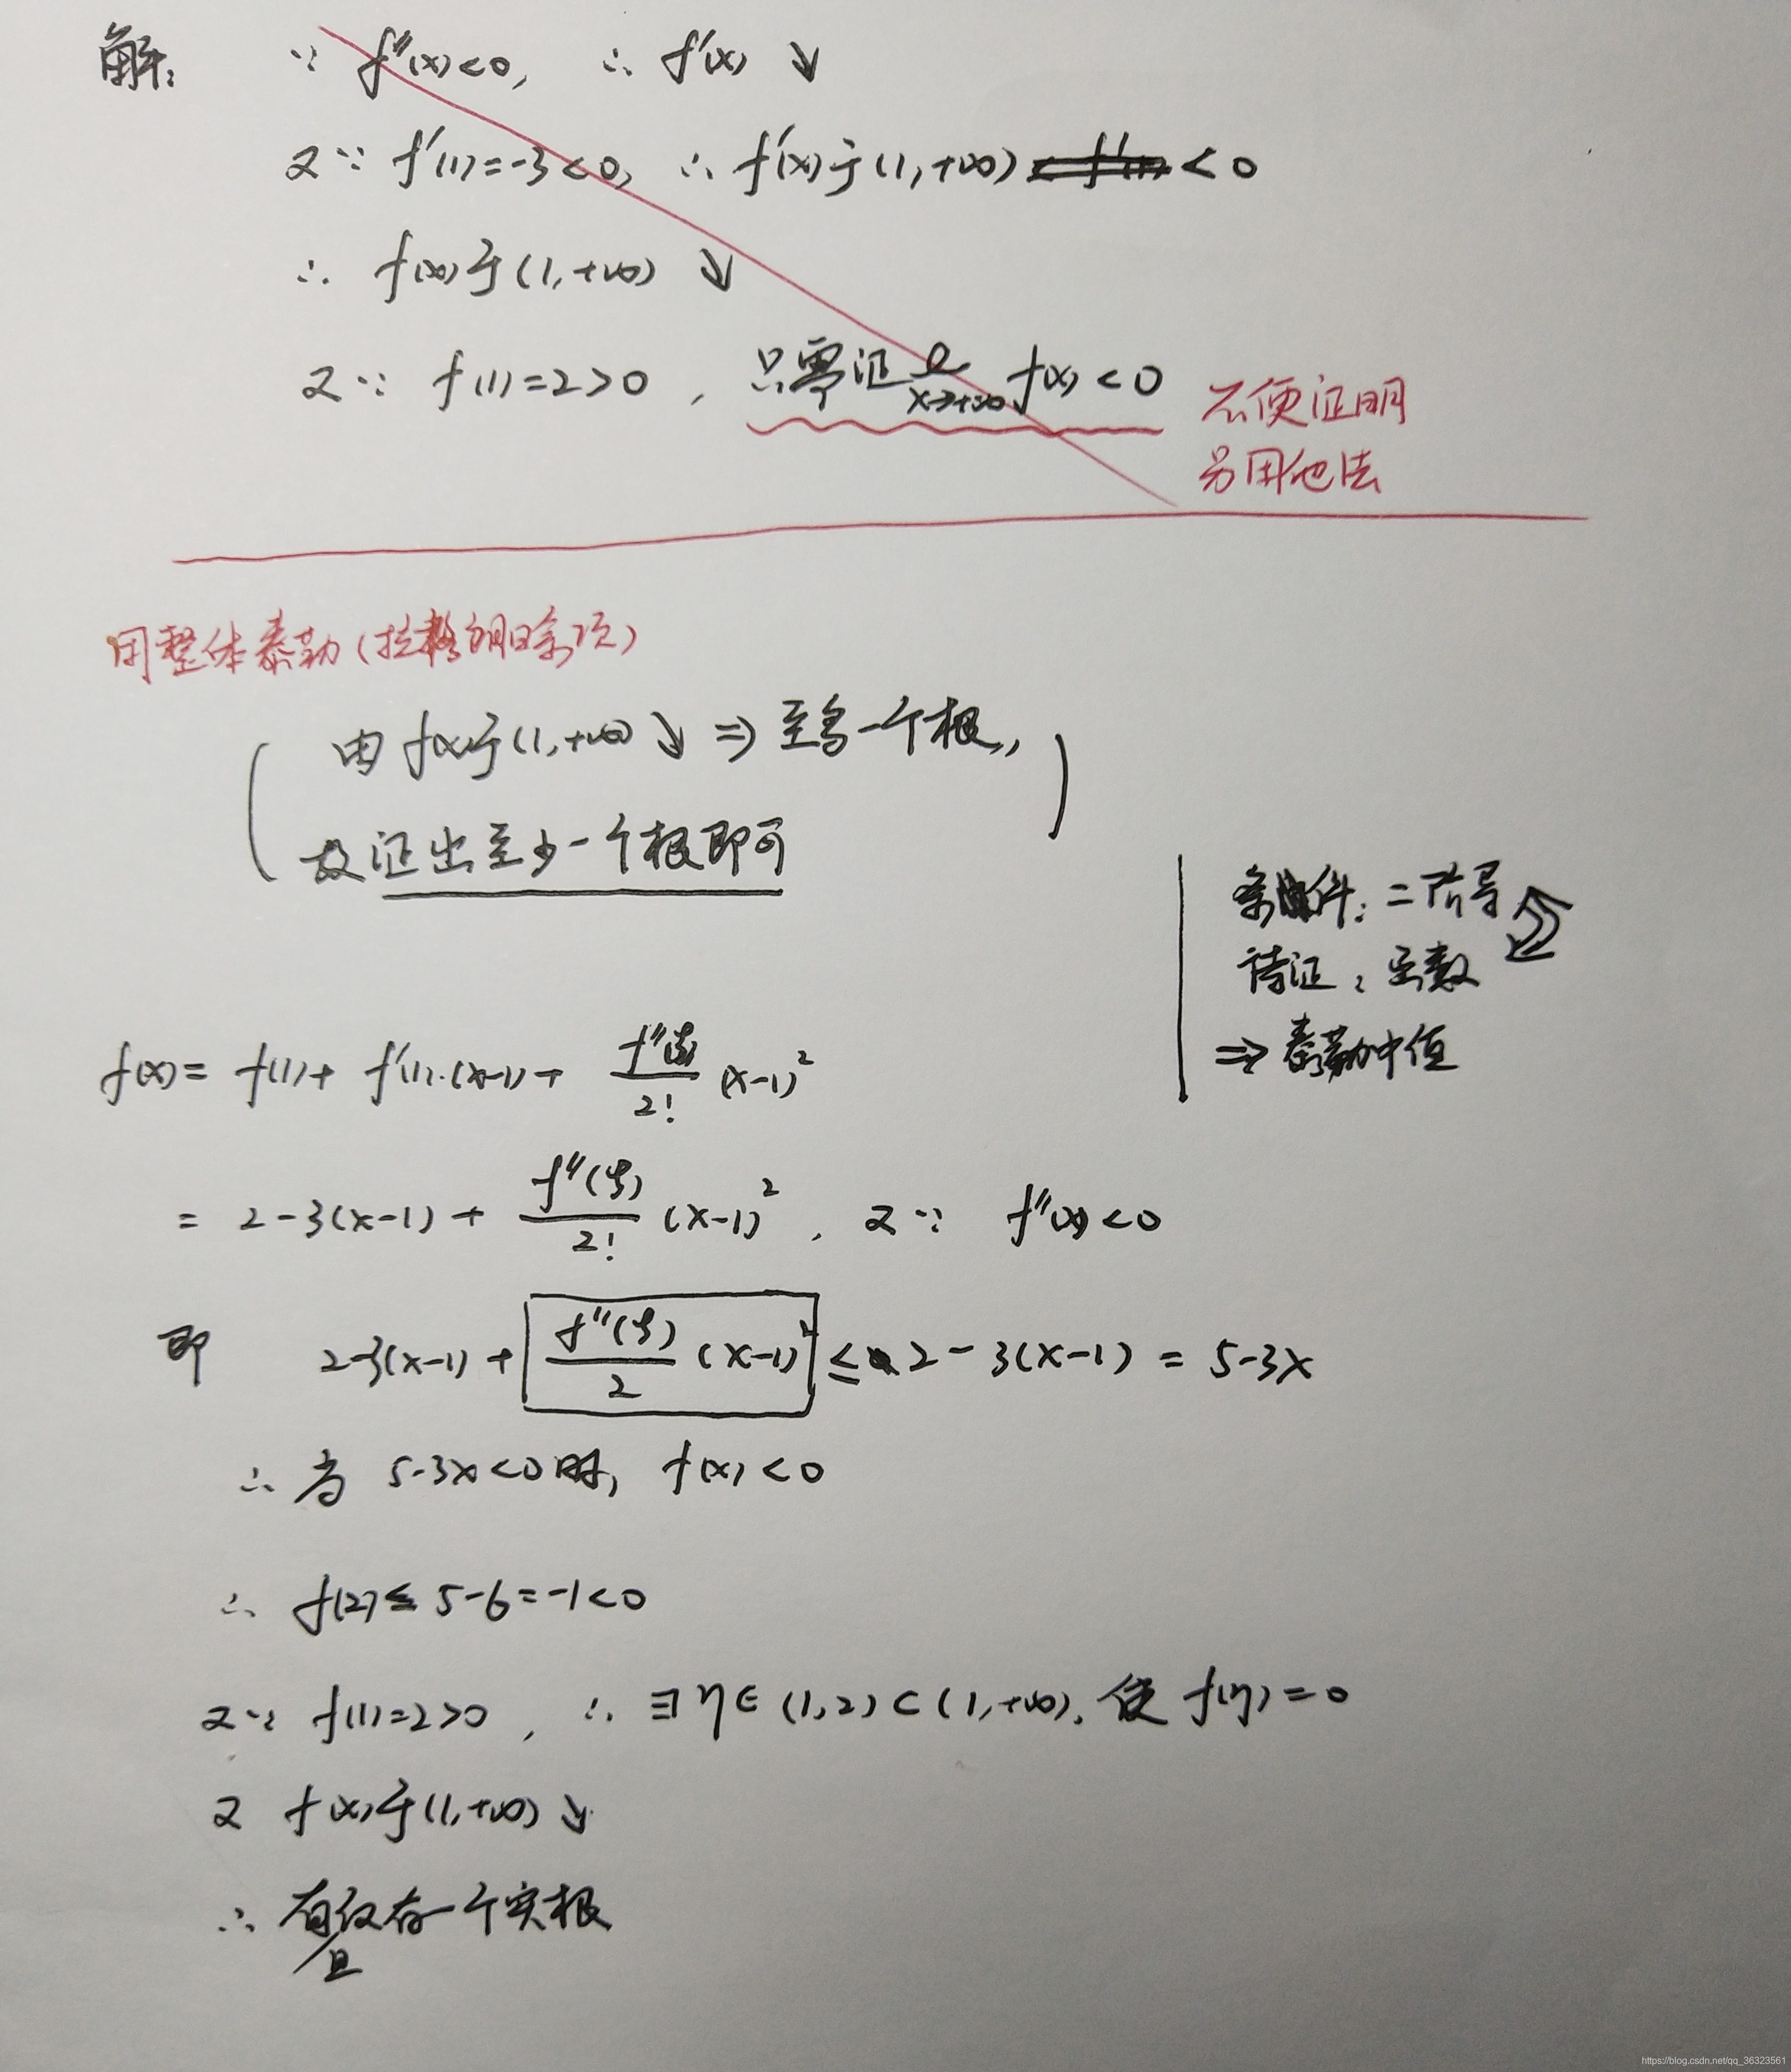 解: ∵ f''(x)<0, ∴ f'(x) ↘
又∵ f'(1)=-3<0, ∴ f'(x)于(1,+∞) < f'(1) < 0
∴ f(x)于(1,+∞) ↘
又∵ f(1)=2>0, 只需证 l x→+∞ f(x)<0
不便证明
另用他法
用整体泰勒(拉格朗日余项)
由 f(x)于(1,+∞)↘ ⇒ 至多一个根,
故证出至少一个根即可
条件: 二阶导
待证: 函数
⇒ 泰勒中值
f(x)= f(1)+ f'(1)·(x-1)+ f''(ξ)/2! (x-1)²
= 2-3(x-1)+ f''(ξ)/2! (x-1)², 又∵ f''(x)<0
即 2-3(x-1)+ f''(ξ)/2 (x-1)² ≤ 2-3(x-1) = 5-3x
∴ 当 5-3x<0时, f(x)<0
∴ f(2)≤ 5-6=-1<0
又∵ f(1)=2>0, ∴ ∃η∈(1,2)⊂(1,+∞), 使 f(η)=0
又 f(x)于(1,+∞)↘
∴ 有且仅有一个实根
https://blog.csdn.net/qq_36323561